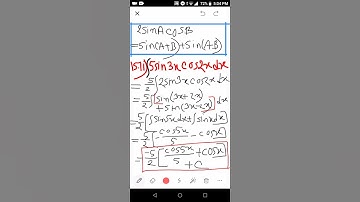 72% 5:04 PM
2SinA CosB
=Sin(A+B)+Sin(A-B)
151) ∫5Sin3x Cos2x dx
= 5/2 ∫2Sin3x Cos2x dx
= 5/2 ∫[Sin(3x+2x)
+ Sin(3x-2x)] dx
= 5/2 [∫Sin5x dx + ∫Sinx dx]
= 5/2 [- Cos5x/5 - Cosx]
= -5/2 [Cos5x/5 + Cosx]
+ C